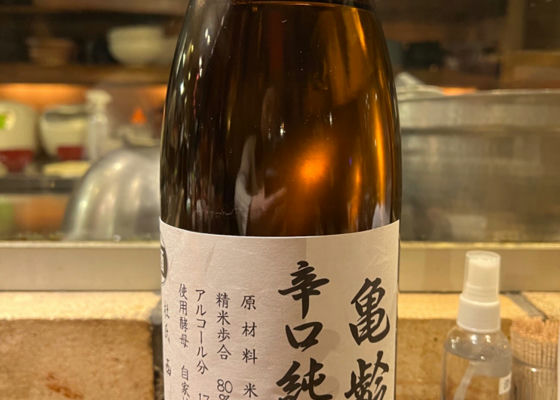 亀齢
辛口純
原材料 米
精米歩合 80%
アルコール分 17
使用酵母 自家
杜氏 西